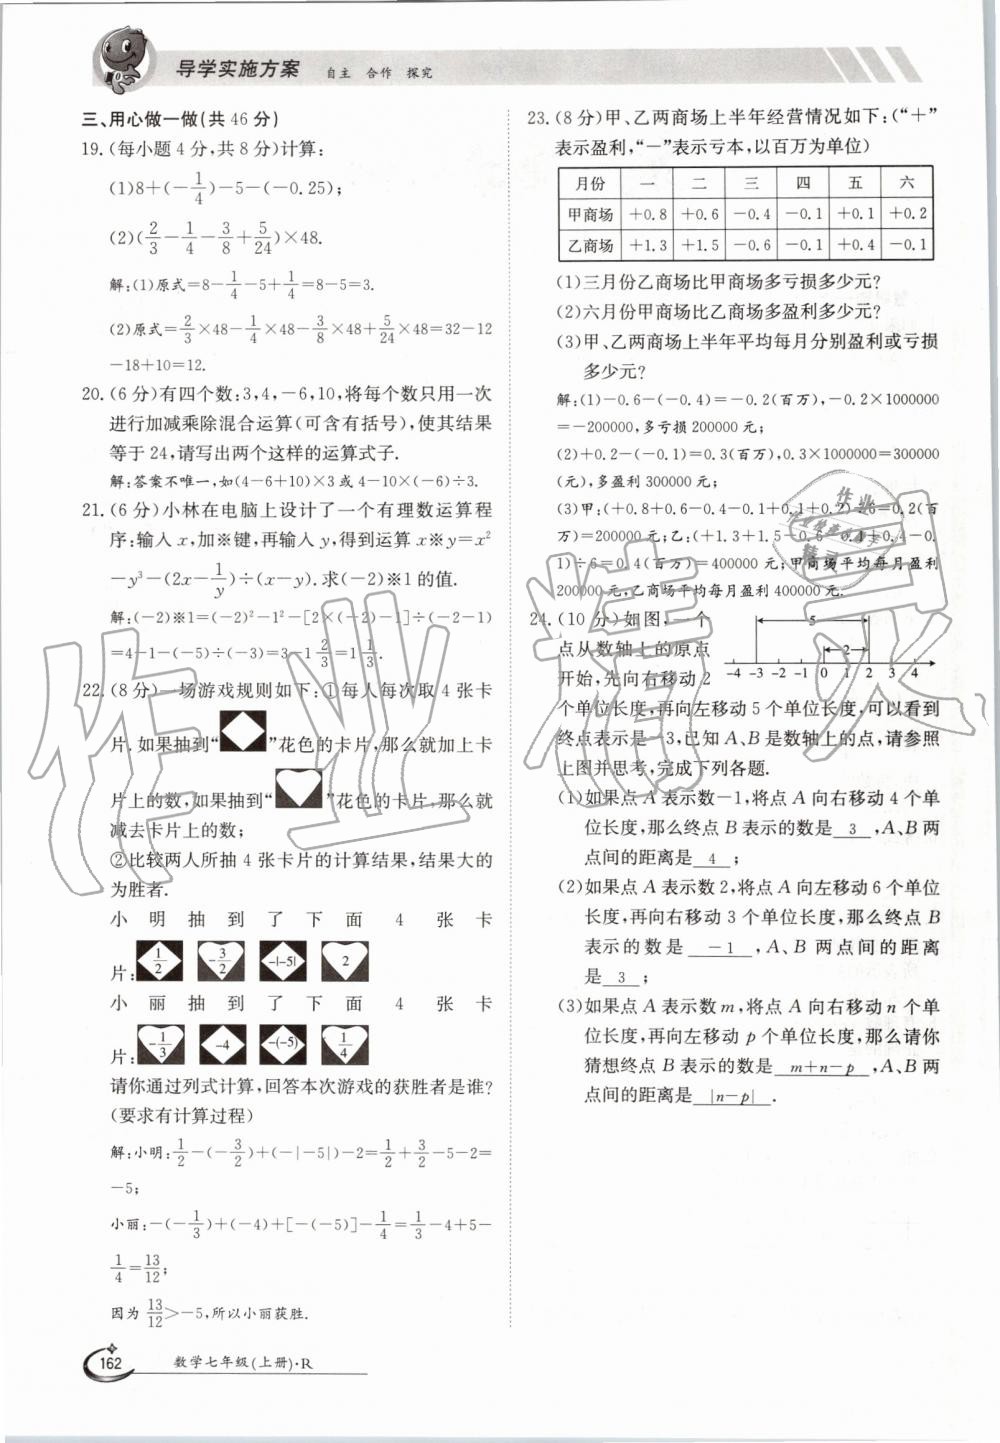 导学实施方案 自主 合作 探究
三、用心做一做(共 46 分)
19.(每小题 4 分,共 8 分)计算:
(1)8+(-1/4)-5-(-0.25);
(2)(2/3-1/4-3/8+5/24)×48.
解:(1)原式=8-1/4-5+1/4=8-5=3.
(2)原式=2/3×48-1/4×48-3/8×48+5/24×48=32-12
-18+10=12.
20.(6 分)有四个数:3,4,-6,10,将每个数只用一次
进行加减乘除混合运算(可含有括号),使其结果
等于 24,请写出两个这样的运算式子.
解:答案不唯一,如(4-6+10)×3 或 4-10×(-6)÷3.
21.(6 分)小林在电脑上设计了一个有理数运算程
序:输入 x,加※键,再输入 y,得到运算 x※y=x²
-y³-(2x-1/y)÷(x-y).求(-2)※1 的值.
解:(-2)※1=(-2)²-1³-[2×(-2)-1]÷(-2-1)
=4-1-(-5)÷(-3)=3-1 2/3=1 1/3.
22.(8 分)一场游戏规则如下:①每人每次取 4 张卡
片.如果抽到“ ”花色的卡片,那么就加上卡
片上的数,如果抽到“ ”花色的卡片,那么就
减去卡片上的数;
②比较两人所抽 4 张卡片的计算结果,结果大的
为胜者.
小明抽到了下面 4 张卡
片: 1/2 -3/2 -|-5| 2
小丽抽到了下面 4 张卡
片: -1/3 -4 -(-5) 1/4
请你通过列式计算,回答本次游戏的获胜者是谁?
(要求有计算过程)
解:小明:1/2-(-3/2)+(-|-5|)-2=1/2+3/2-5-2=
-5;
小丽:-(-1/3)+(-4)+[-(-5)]-1/4=1/3-4+5-
1/4=13/12;
因为 13/12>-5,所以小丽获胜.
162 数学七年级(上册)·R
23.(8 分)甲、乙两商场上半年经营情况如下:(“+”
表示盈利,“-”表示亏本,以百万为单位)
月份 一 二 三 四 五 六
甲商场 +0.8 +0.6 -0.4 -0.1 +0.1 +0.2
乙商场 +1.3 +1.5 -0.6 -0.1 +0.4 -0.1
(1)三月份乙商场比甲商场多亏损多少元?
(2)六月份甲商场比乙商场多盈利多少元?
(3)甲、乙两商场上半年平均每月分别盈利或亏损
多少元?
解:(1)-0.6-(-0.4)=-0.2(百万),-0.2×1000000
=-200000,多亏损 200000 元;
(2)+0.2-(-0.1)=0.3(百万),0.3×1000000=300000
(元),多盈利 300000 元;
(3)甲:(+0.8+0.6-0.4-0.1+0.1+0.2)÷6=0.2(百
万)=200000元;乙:(+1.3+1.5-0.6-0.1+0.4-0.
1)÷6=0.4(百万)=400000元;甲商场平均每月盈利
200000 元,乙商场平均每月盈利 400000 元.
24.(10 分)如图,一个
点从数轴上的原点
开始,先向右移动 2
5
2
-4 -3 -2 -1 0 1 2 3 4
个单位长度,再向左移动 5 个单位长度,可以看到
终点表示是-3,已知 A、B 是数轴上的点,请参照
上图并思考,完成下列各题.
(1)如果点 A 表示数-1,将点 A 向右移动 4 个单
位长度,那么终点 B 表示的数是 3 ,A、B 两
点间的距离是 4 ;
(2)如果点 A 表示数 2,将点 A 向左移动 6 个单位
长度,再向右移动 3 个单位长度,那么终点 B
表示的数是 -1 ,A、B 两点间的距离
是 3 ;
(3)如果点 A 表示数 m,将点 A 向右移动 n 个单
位长度,再向左移动 p 个单位长度,那么请你
猜想终点 B 表示的数是 m+n-p ,A、B 两
点间的距离是 |n-p| .
作业精灵